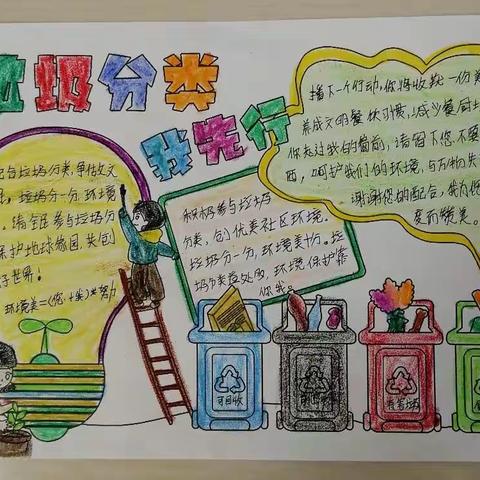 垃圾分类
我先行
垃圾分类,
垃圾分一分 环境
请全民参与垃圾分
保护地球家园 共创
好世界!
环境美=(您+我)*努力
积极参与垃圾
分类,创优美社区环境.
垃圾分一分,环境美十分.垃
圾分类益处多,环境保护靠
你我.
播下一个行动,你将收获一份美
养成文明餐饮习惯,减少餐厨垃
你走过我的面前,请留下您不要
西,呵护我们的环境,与万物
谢谢您的配合,我为您
变而赞美。
可回收
有害垃圾